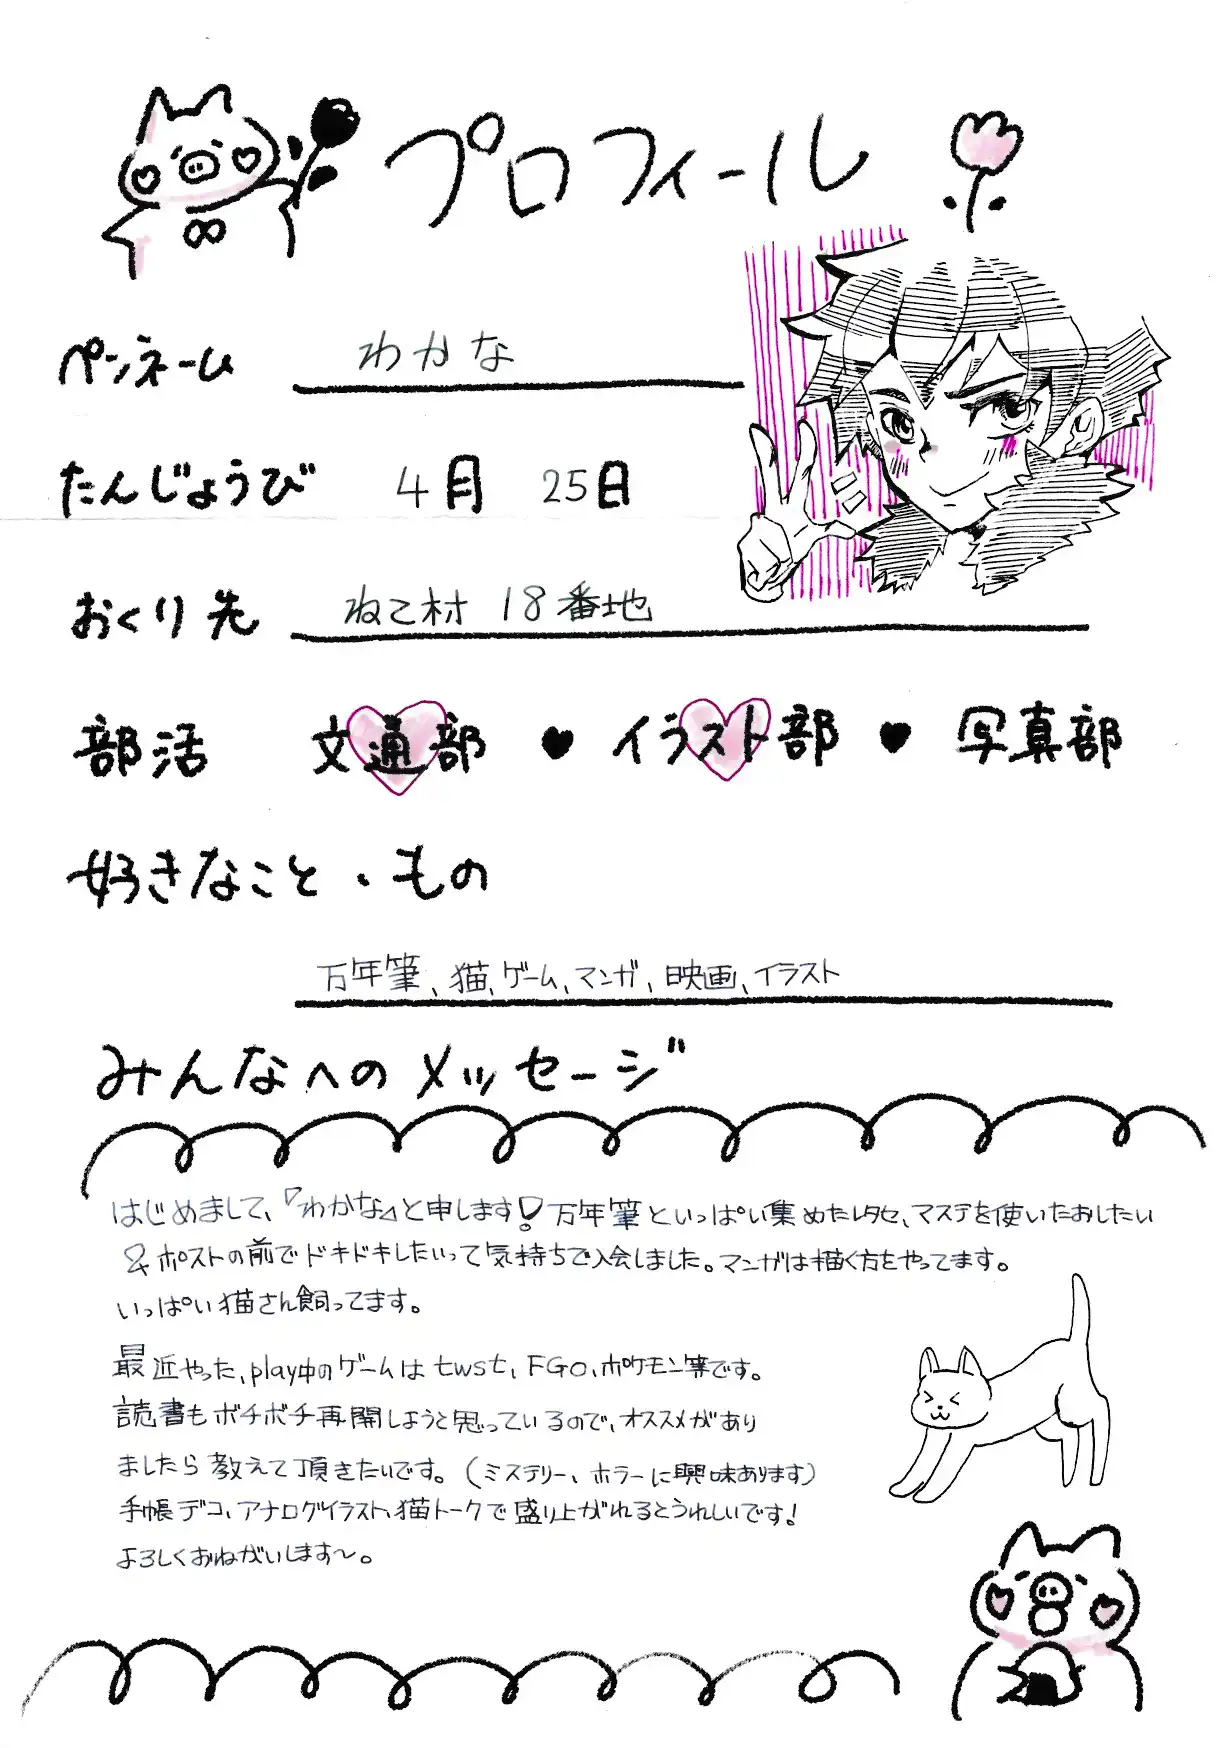 プロフィール
ペンネーム わかな
たんじょうび 4月 25日
おくり先 ねこ村 18番地
部活 文通部 ♥ イラスト部 ♥ 写真部
好きなこと・もの
万年筆、猫、ゲーム、マンガ、映画、イラスト
みんなへのメッセージ
はじめまして、『わかな』と申します!万年筆といっぱい集めたレタセ、マステを使いたおしたい
&ポストの前でドキドキしたいって気持ちで入会しました。マンガは描く方をやってます。
いっぱい猫さん飼ってます。
最近やった、play中のゲームはtwst、FGO、ポケモン等です。
読書もボチボチ再開しようと思っているので、オススメがあり
ましたら教えて頂きたいです。(ミステリー、ホラーに興味あります)
手帳デコ、アナログイラスト、猫トークで盛り上がれるとうれしいです!
よろしくおねがいします〜。